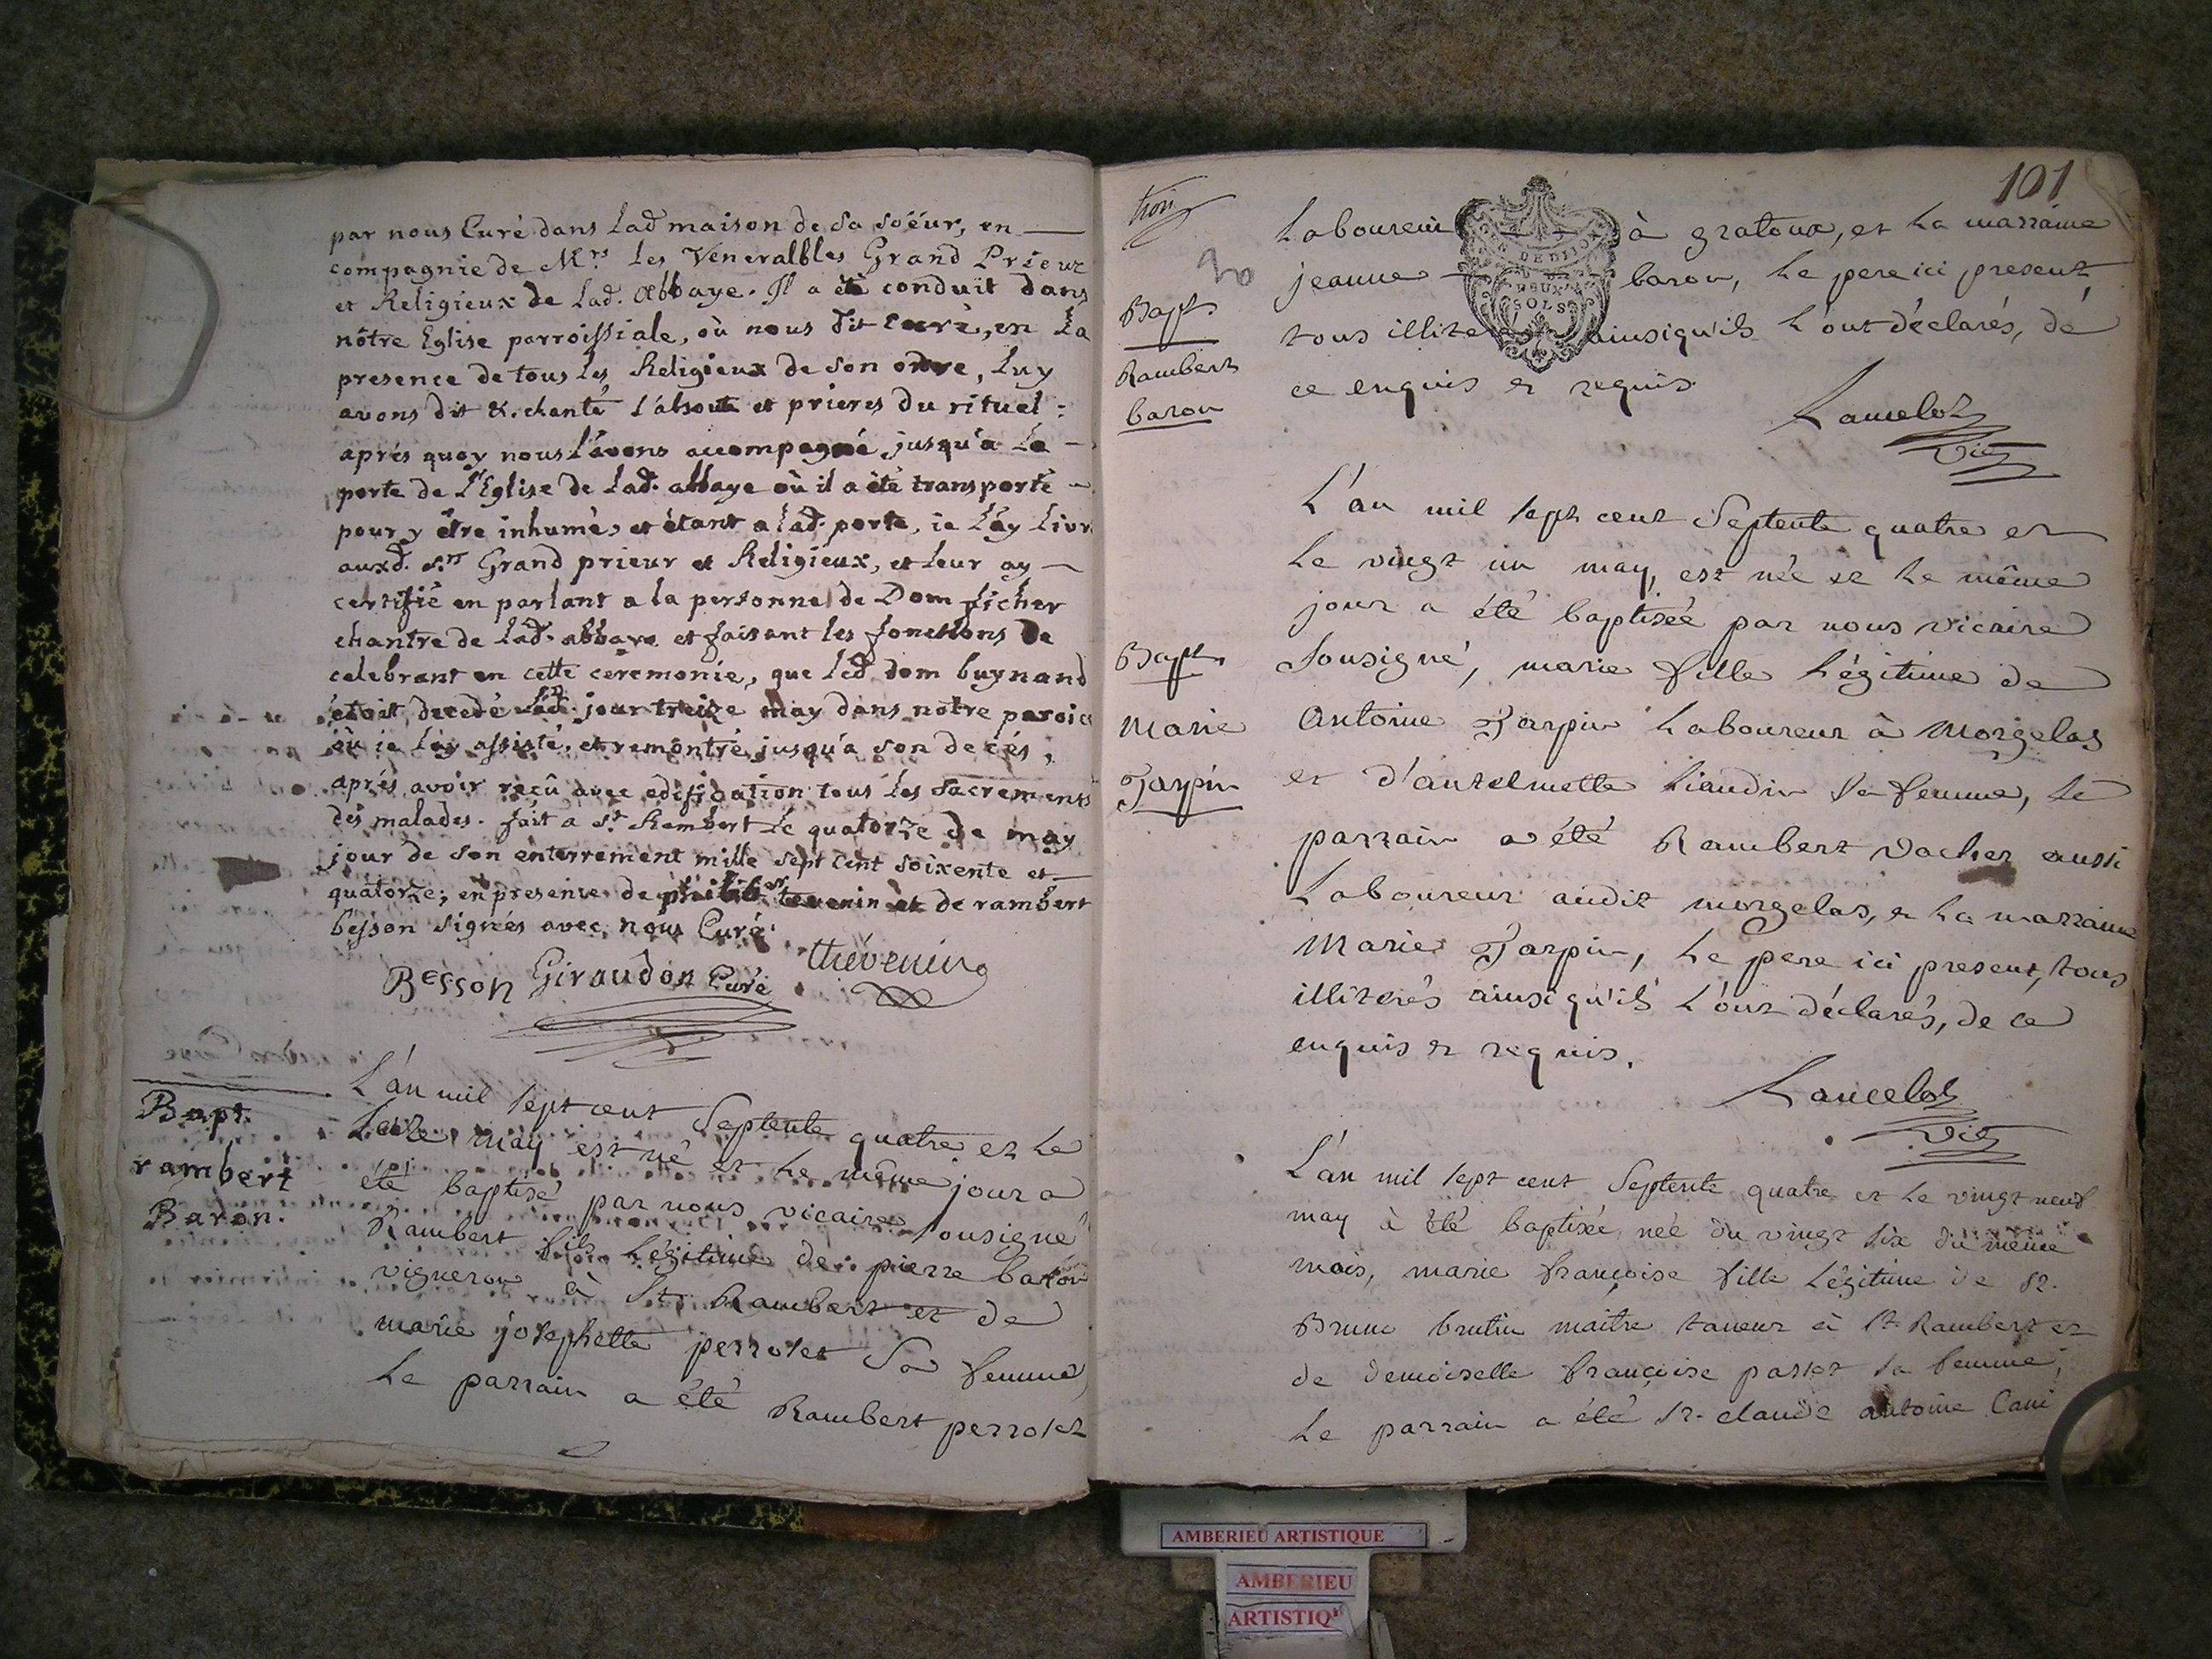 par nous Curé dans Lad maison de sa soëur, en
compagnie de Mrs Les Veneralbles Grand Prieur
et Religieux de Lad. Abbaye. Il a été conduit dans
nôtre Eglise parroissiale, où nous dit Curé, en La
presence de tous Les Religieux de son ordre, Luy
avons dit & chanté L'absoute et prieres du rituel :
aprés quoy nous L'avons accompagné jusqu'a La
porte de L'Eglise de Lad. abbaye où il a été transporté
pour y être inhumé, et étant a Lad. porte, ie L'ay Livr
auxd. Srs Grand prieur et Religieux, et Leur ay
certifié en parlant a la personne de Dom ficher
chantre de Lad. abbaye et faisant les fonctions de
celebrant en cette ceremonie, que Led dom buynand
étoit decedé Led. jour treize may dans nôtre paroice
où ie L'ay assisté, et remontré jusqu'a son decés,
aprés avoir reçû avec edification tous Les Sacrements
des malades. fait a St Rembert Le quatorze de may
jour de son enterrement mille sept cent soixente et
quatorze; en presence de philibert tevenin et de rambert
besson signés avec nous Curé.
Besson Giraudon Curé thévenin
Bapt.
rambert
Baron.
L'an mil sept cent Septente quatre et Le
may est né et Le même jour a
été baptisé par nous vicaire sousigné
Rambert fils Légitime de pierre baron
vigneron à St. Rambert et de
marie josephette perrotet Sa femme,
Le parrain a été Rambert perrotet
101
Bapt
Rambert
baron
Laboureur à gratoux, et La marraine
jeanne baron, Le pere ici present,
tous illite ainsi qu'ils L'ont déclarés, de
ce enquis et requis.
DE DIJON
DEUX
SOLS
Lancelot
Vic
L'an mil sept cent Septente quatre et
Le vingt un may, est née et Le même
jour a été baptisée par nous vicaire
Bapt
Marie
Tarpin
Sousigné, marie fille Légitime de
Antoine Tarpin Laboureur à Morgelas
et d'antelmette Liaudin sa femme, Le
parrain a été Rambert Vacher aussi
Laboureur audit morgelas, et La marraine
Marie Tarpin, Le pere ici present, tous
illiterés ainsi qu'ils L'ont déclarés, de ce
enquis et requis.
Lancelot
Vic
L'an mil sept cent Septente quatre et Le vingt neuf
may à été baptisée née du vingt six du même
mois, marie françoise fille Légitime de Sr.
Bruno brutin maitre taneur à St. Rambert et
de demoiselle françoise passot sa femme,
Le parrain a été Sr. claude antoine
AMBERIEU ARTISTIQUE
AMBERIEU
ARTISTIQ